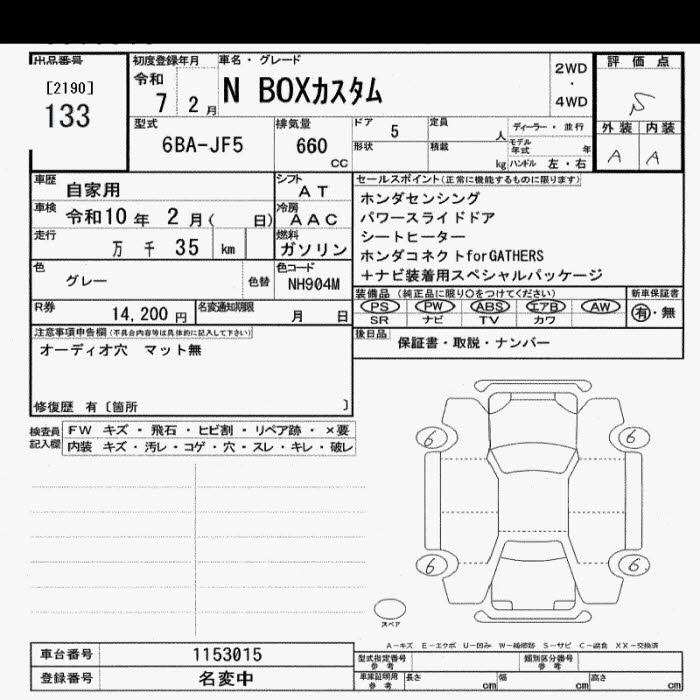 出品番号
[2190]
133
初度登録年月
令和
7 2 月
車名・グレード
N BOXカスタム
2WD
・
4WD
評価点
S
外装 内装
A A
型式
6BA-JF5
排気量
660
CC
ドア
5
定員
人
ディーラー・並行
形状
積載
kg
モデル年式
年
ハンドル 左・右
車歴
自家用
シフト
AT
車検 令和10年 2月( 日)
冷房
AAC
走行
万 千 35 km
燃料
ガソリン
色
グレー
色替
色コード
NH904M
R券
14,200 円
名変通知期限
月 日
セールスポイント(正常に機能するものに限ります)
ホンダセンシング
パワースライドドア
シートヒーター
ホンダコネクトforGATHERS
+ナビ装着用スペシャルパッケージ
装備品 (純正品に限り○をつけてください)
PS PW ABS エアB AW
SR ナビ TV カワ
新車保証書
有・無
後日品
保証書・取説・ナンバー
注意事項申告欄(不具合内容等は具体的に記入して下さい)
オーディオ穴 マット無
修復歴 有〔箇所 〕
検査員
記入欄
FW キズ・飛石・ヒビ割・リペア跡・×要
内装 キズ・汚レ・コゲ・穴・スレ・キレ・破レ
6 6
6 6
スペア
A-キズ E-エクボ U-凹み W-補修跡 S-サビ C-腐食 XX-交換済
車台番号
1153015
登録番号
名変中
型式指定番号
参考
類別区分番号
参考
車庫証明用
参考
長さ cm 幅 cm 高さ cm